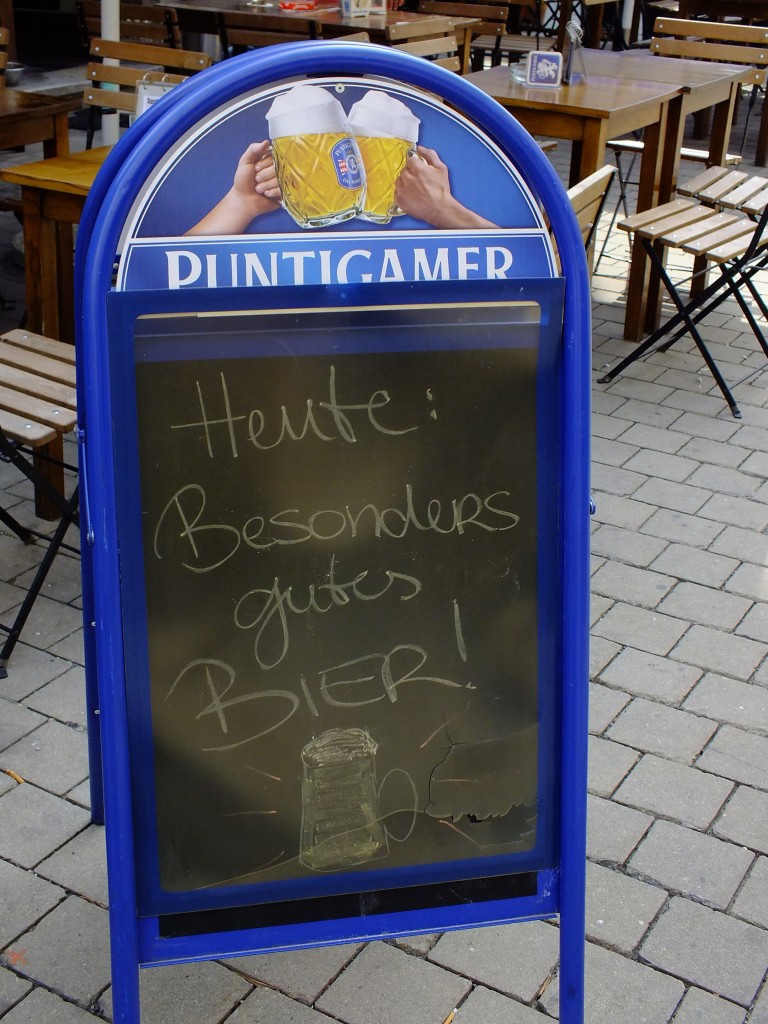 PUNTIGAMER
Heute:
Besonders
gutes
BIER!